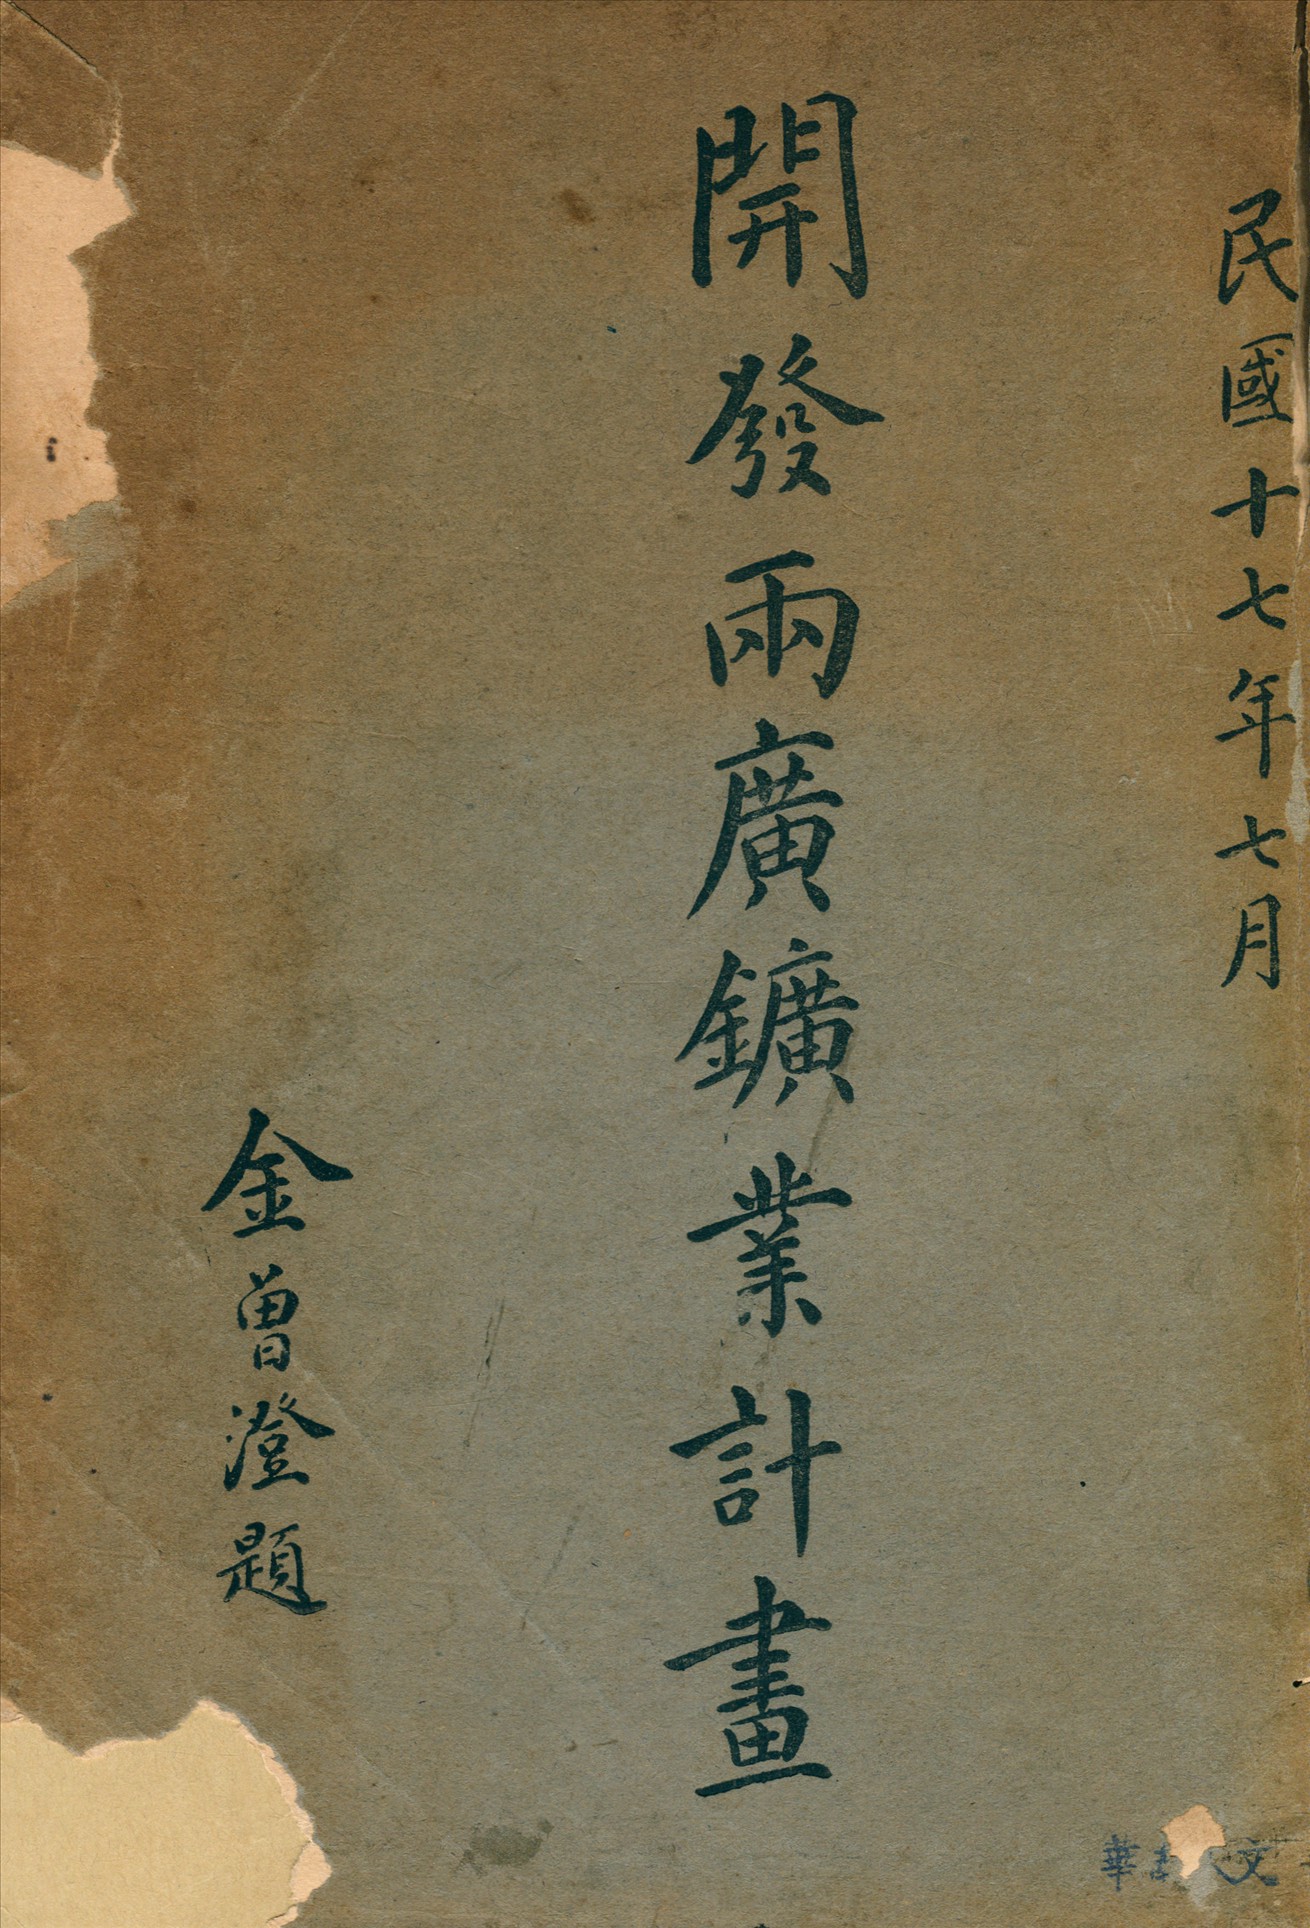 民國十七年七月
開發兩廣鑛業計畫
金曾澄題
文
華